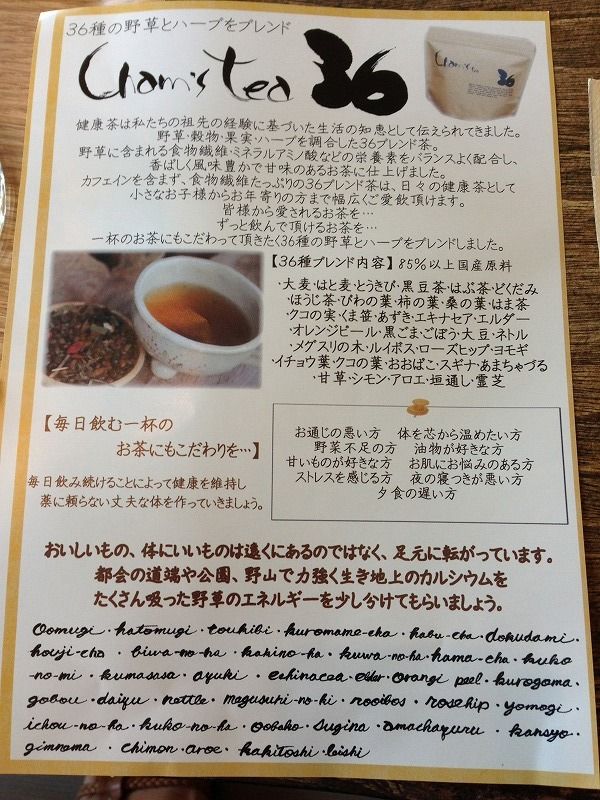 36種の野草とハーブをブレンド
Cham's tea 36
健康茶は私たちの祖先の経験に基づいた生活の知恵として伝えられてきました。
野草・穀物・果実・ハーブを調合した36ブレンド茶。
野草に含まれる食物繊維・ミネラルアミノ酸などの栄養素をバランスよく配合し、
香ばしく風味豊かで甘味のあるお茶に仕上げました。
カフェインを含まず、食物繊維たっぷりの36ブレンド茶は、日々の健康茶として
小さなお子様からお年寄りの方まで幅広くご愛飲頂けます。
皆様から愛されるお茶を…
ずっと飲んで頂けるお茶を…
一杯のお茶にもこだわって頂きたく36種の野草とハーブをブレンドしました。
【36種ブレンド内容】85%以上国産原料
・大麦・はと麦・とうきび・黒豆茶・はぶ茶・どくだみ
・ほうじ茶・びわの葉・柿の葉・桑の葉・はま茶
・クコの実・くま笹・あずき・エキナセア・エルダー
・オレンジピール・黒ごま・ごぼう・大豆・ネトル
・メグスリの木・ルイボス・ローズヒップ・ヨモギ
・イチョウ葉・クコの葉・おおばこ・スギナ・あまちゃづる
・甘草・シモン・アロエ・垣通し・霊芝
【毎日飲む一杯の
お茶にもこだわりを…】
毎日飲み続けることによって健康を維持し
薬に頼らない丈夫な体を作っていきましょう。
お通じの悪い方 体を芯から温めたい方
野菜不足の方 油物が好きな方
甘いものが好きな方 お肌にお悩みのある方
ストレスを感じる方 夜の寝つきが悪い方
夕食の遅い方
おいしいもの、体にいいものは遠くにあるのではなく、足元に転がっています。
都会の道端や公園、野山で力強く生き地上のカルシウムを
たくさん吸った野草のエネルギーを少し分けてもらいましょう。
Oomugi・hatomugi・toukibi・kuromame-cha・habu-cha・dokudami・
houji-cha・biwa-no-ha・kakino-ha・kuwa-no-ha・hama-cha・kuko
-no-mi・kumasasa・azuki・echinacea・elder・orangi peel・kurogoma・
gobou・daizu・nettle・megusuri-no-ki・rooibos・rosehip・yomogi・
ichou-no-ha・kuko-no-ha・oobako・sugina・amachazuru・kansyo・
gimnema・chimon・aroe・kakitoshi・leishi